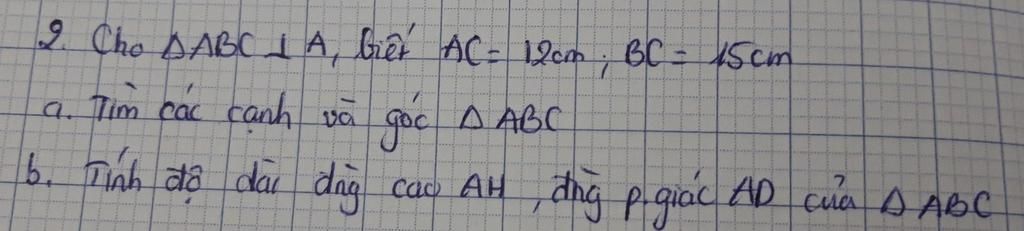 2. Cho ΔABC ⊥ A, biết AC = 12cm ; BC = 15cm
a. Tìm các cạnh và góc Δ ABC
b. Tính độ dài đng cao AH, đng p.giác AD của Δ ABC